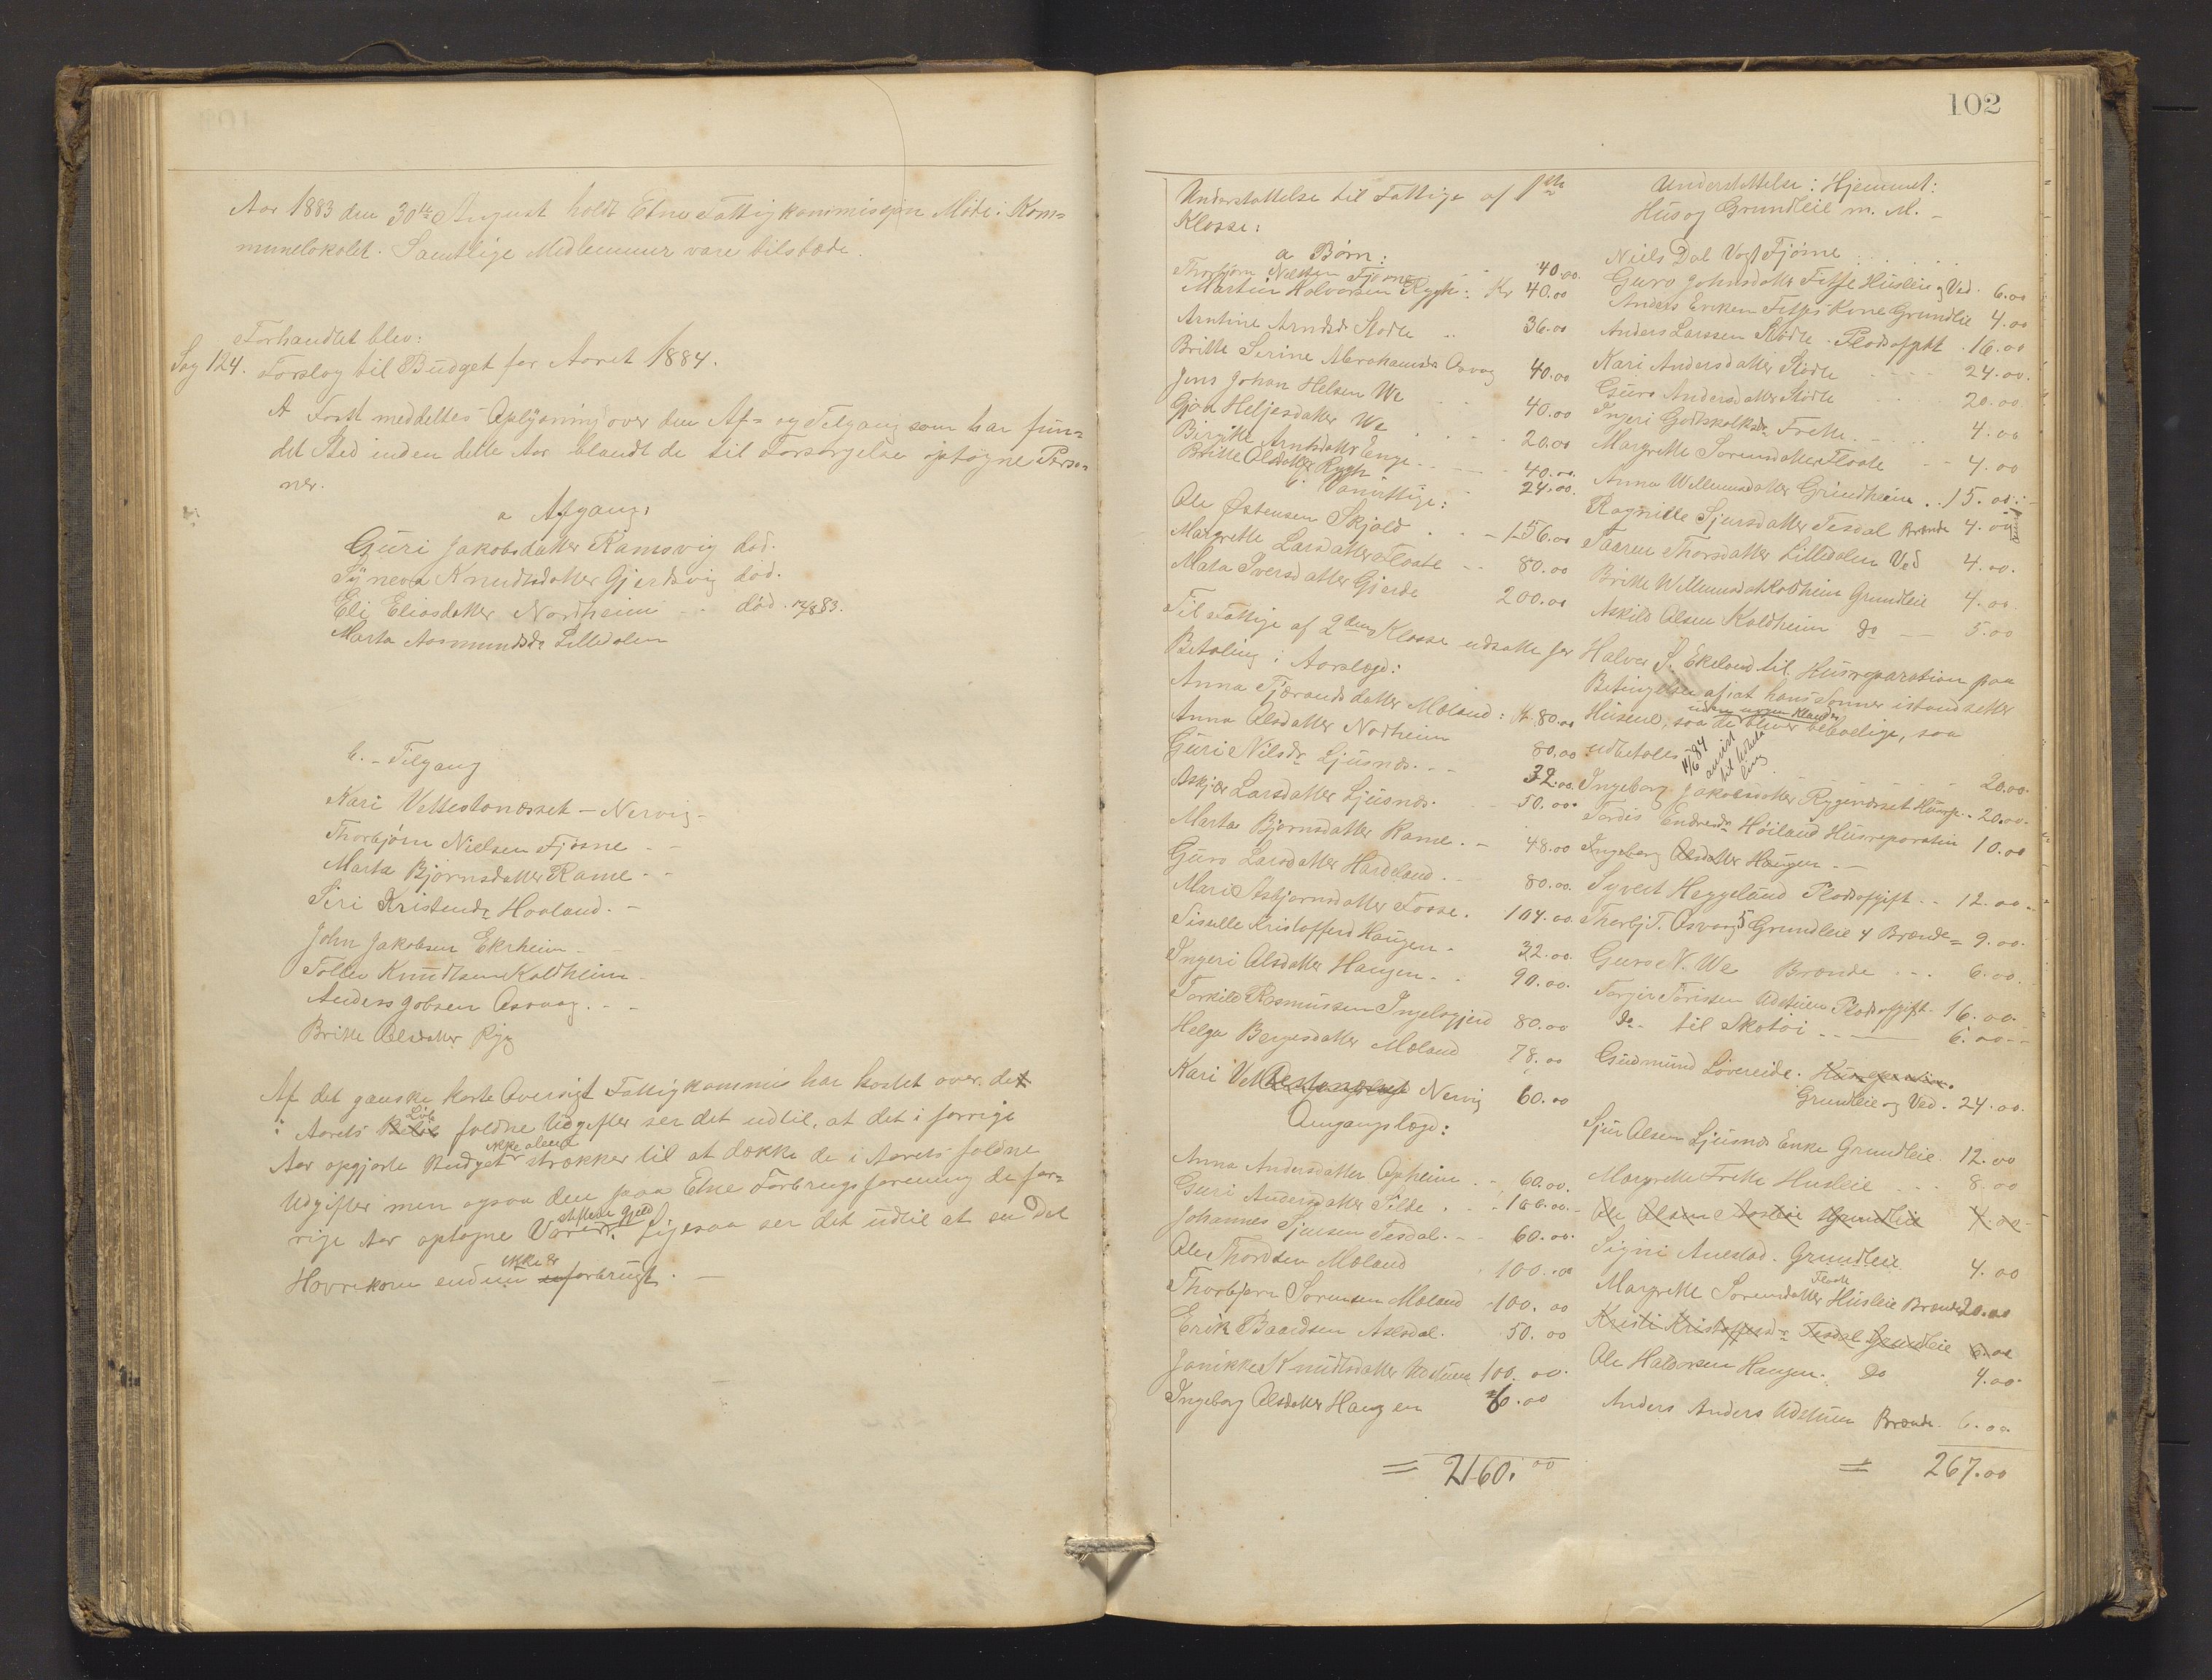 Aar 1883 den 30te August holdt Etne Fattigkommission Møde i Kom=
munelokalet. Samtlige Medlemmer vare tilstæde.
Forhandlet blev:
Sag 124. Forslag til Budget for Aaret 1884.
A Først meddeltes Oplysning over den Af= og Tilgang som har fun=
det Sted inden dette Aar blandt de til Forsørgelse optagne Perso=
ner.
a Afgang:
Guri Jakobsdatter Ramsvig død.
Syneva Knudtsdatter Gjerdsvig død.
Eli Eliasdatter Nordheim - - død. 12/8 83.
Marta Aasmundsdr Lilledalen
b. - Tilgang
Kari Vettestonæsset - Nervig -
Thorbjørn Nielsen Fjøsne - -
Marta Bjørnsdatter Rame - -
Siri Kristensdr Haaland. -
John Jakobsen Ekrheim - -
Tollev Knudtsen Koldheim -
Anders Jobsen Osvaag. - -
Britte Olsdatter Ryg
Af det ganske korte Oversigt Fattigkommis har kastet over det
i Aarets Løb faldne Udgifter ser det udtil, at det i forrige
Aar opgjorte Budget ikke alene strækker til at dække de i Aarets faldne
Udgifter men ogsaa den paa Etne Forbrugsforening de for=
rige Aar optagne Varer stiftede Gjeld. Ligesaa ser det udtil at en Del
Havrekorn endnu ikke er forbrugt. -
102
Understøttelse til Fattige af 1ste
Klasse:
a Børn:
Thorbjørn Nielsen Fjøsne - - 40.00.
Martin Halvorsen Rygh: Kr 40.00
Arntine Arndsdr Stødle .. 36.00
Britte Serine Abrahamsdr Osvag 40.00
Jens Johan Helsen We . . 40.00
Gjøa Heljesdatter We . . . . 20.00
Birgitte Arntsdatter Enge - - 40.00.
Britte Olsdatter Rygh 24.00.
b. Vanvittige:
Ole Østensen Skjold . . - 156.00
Margrethe Larsdatter Flaate - - 80.00
Mata Iversdatter Gjerde 200.00
Til Fattige af 2den Klasse udsatte for
Betaling i Aarslægd:
Anna Tjærandsdatter Mæland: Kr. 80.00
Anna Olsdatter Nordheim 80.00
Guri Nilsdr Ljusnæs. - - 32.00.
Askjær Larsdatter Ljusnæs. 50.00.
Marta Bjørnsdatter Rame. - 48.00
Guro Larsdatter Hardeland. - 80.00.
Mari Asbjørnsdatter Fosse. 104.00.
Siselle Kristoffersd Haugen. 32.00.
Ingeri Olsdatter Haugen - - 90.00.
Torkild Rasmussen Ingelsgjerd 80.00
Helga Børgesdatter Mæland 78.00
Kari Vettestonæsset Nervig 60.00
Omgangslægd:
Anna Andersdatter Opheim - . 60.00.
Guri Andersdatter Silde . - . 100.00. -
Johannes Sjursen Tesdal. - - 60.00.
Ole Thordsen Mæland 100.00
Thorbjørn Sørensen Mæland 100.00
Erik Baardsen Axlsdal. 50.00
Janikke Knudtsdatter Udstuen 100.00.
Ingeborg Olsdatter Haugen 60.00
= 2160.00
Understøttelse i Hjemmet:
Hus og Grundleie m. M. -
Niels Dal Vogt Fjøsne . . . . . .
Guro Johnsdatter Fitje Husleie og Ved. 6.00
Anders Eriksen Fitjes Kone Grundleie 4.00
Anders Larssen Stødle - Pladsafgift . 16.00
Kari Andersdatter Stødle . . . . 24.00.
Guro Andersdatter Stødle . . . 20.00
Ingeri Godtskalksdr Frette. - . . 4.00
Margrette Sørensdatter Flaate - - 4.00
Anna Willumsdatter Grindheim . . 15.00. -
Ragnilde Sjursdatter Tesdal Brænde 4.00
Taaren Thorsdatter Lilledalen Ved 4.00.
Britte Willumsdatr Koldheim Grundleie 4.00.
Askild Olsen Koldheim do - - 5.00
Halvor S. Ekeland til Husreparation paa
Betingelse af at hans Sønner istandsætter
Husene, saa de bliver uden nogen Klander beboelige, saa
udbetales 11/6 84 anvist til Udbetaling - - 20.00.
Ingeborg Jakobsdatter Rygenæsset Husrp. . 20.00.
Tordis Endresdr Høiland Husreparation 10.00
Ingeborg Olsdatter Haugen - -
Syvert Heggelund Pladsafgift - - 12.00. -
Thorbj. T. Osvaag 5 Grundleie 4 Brænde = 9.00.
Guro N. We Brænde . - . 6.00.
Torger Torissen Udstuen Pladsafgift - 16.00.
do - til Skotøi - - - 6.00 - -
Gudmund Løvereide. Husreparation.
Grundleie og Ved. 24.00.
Sjur Olsen Ljusnæs Enke Grundleie. 12.00
Margrette Frette Husleie . . . 8.00
Ole Olsen Grundleie 4.00 -
Signi Auestad. Grundleie 4.00
Margrette Sørensdatter Flaate Husleie Brænde 20.00
Kristi Kristoffersdr Tesdal Grundleie 6.00
Ole Halvorsen Haugen. do 4.00.
Anders Anders Udstuen Brænde 6.00
= 267.00